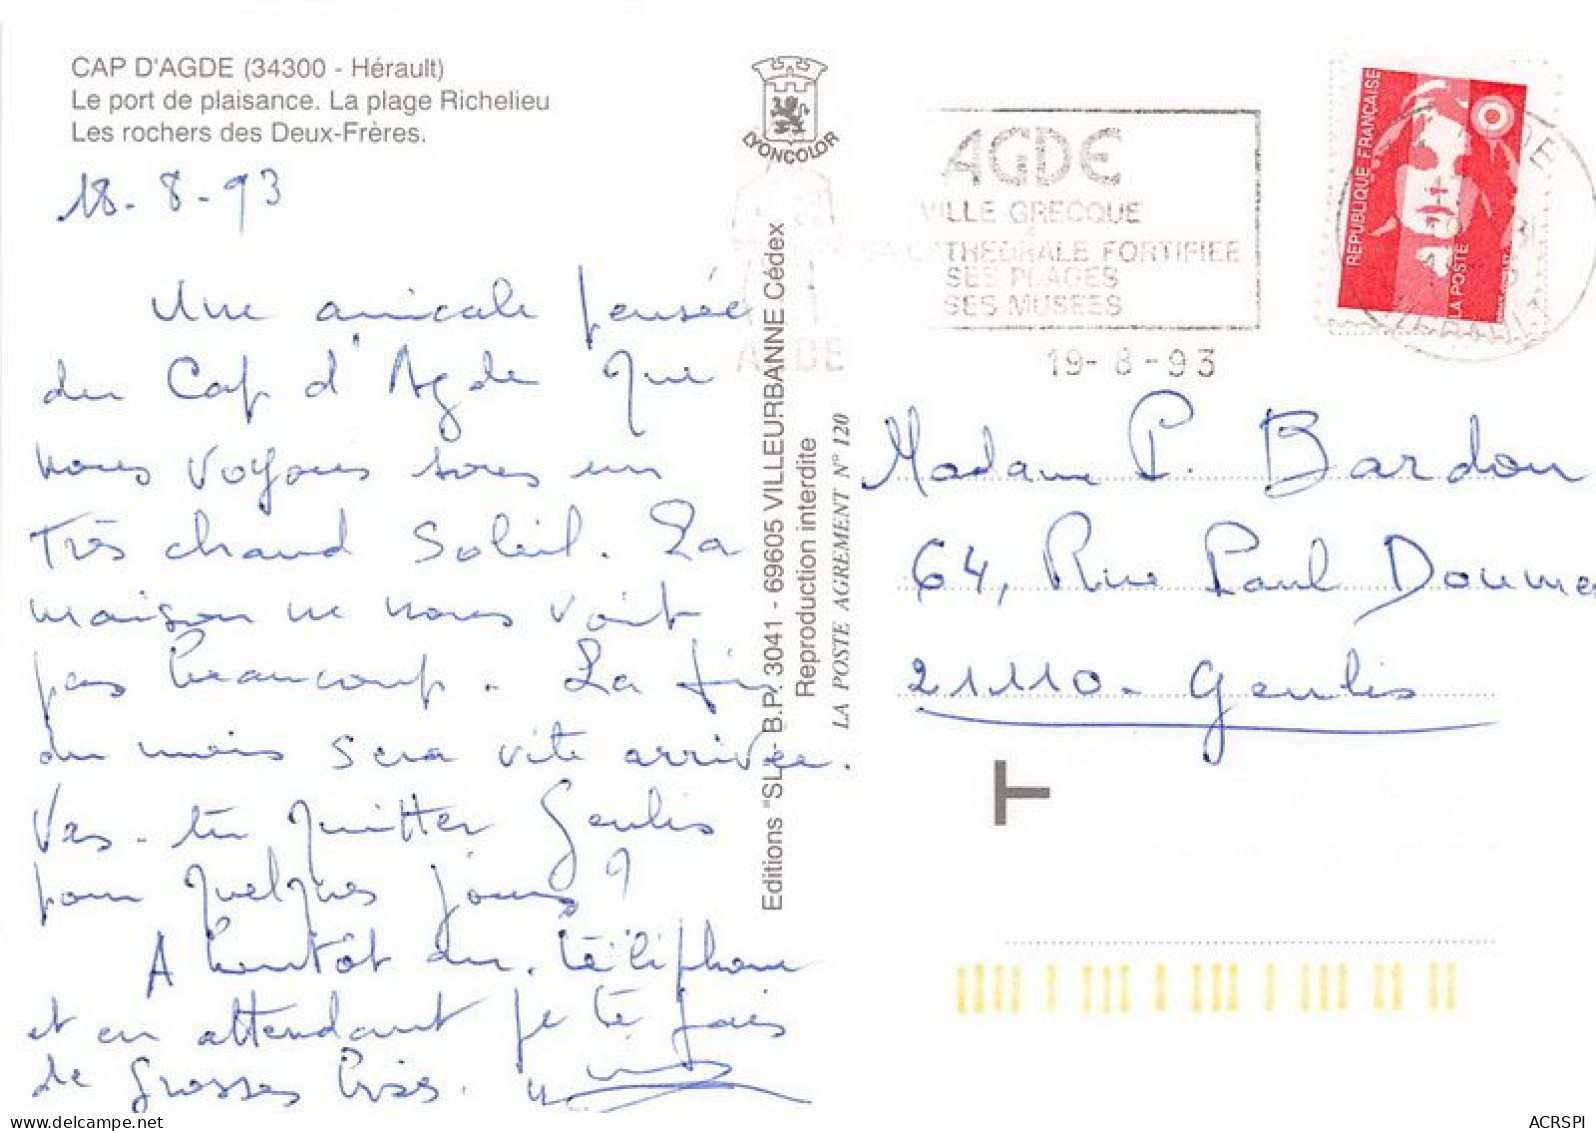 CAP D'AGDE (34300 - Hérault)
Le port de plaisance. La plage Richelieu
Les rochers des Deux-Frères.
18-8-93
Une amicale pensée
du Cap d'Agde que
nous voyons sous un
très chaud Soleil. La
maison ne nous voit
pas beaucoup. La fin
du mois sera vite arrivée.
Vas-tu quitter Genlis
pour quelques jours ?
A bientôt au téléphone
et en attendant je te fais
de grosses bises.
LYONCOLOR
Editions "SL" B.P. 3041 - 69605 VILLEURBANNE Cédex
Reproduction interdite
LA POSTE AGREMENT N° 120
AGDE
AGDE
VILLE GRECQUE
SA CATHEDRALE FORTIFIEE
SES PLAGES
SES MUSEES
19-8-93
REPUBLIQUE FRANÇAISE
LA POSTE
Madame P. Bardou
64, Rue Paul Doumer
21110 - Genlis
T
www.delcampe.net
ACRSPI